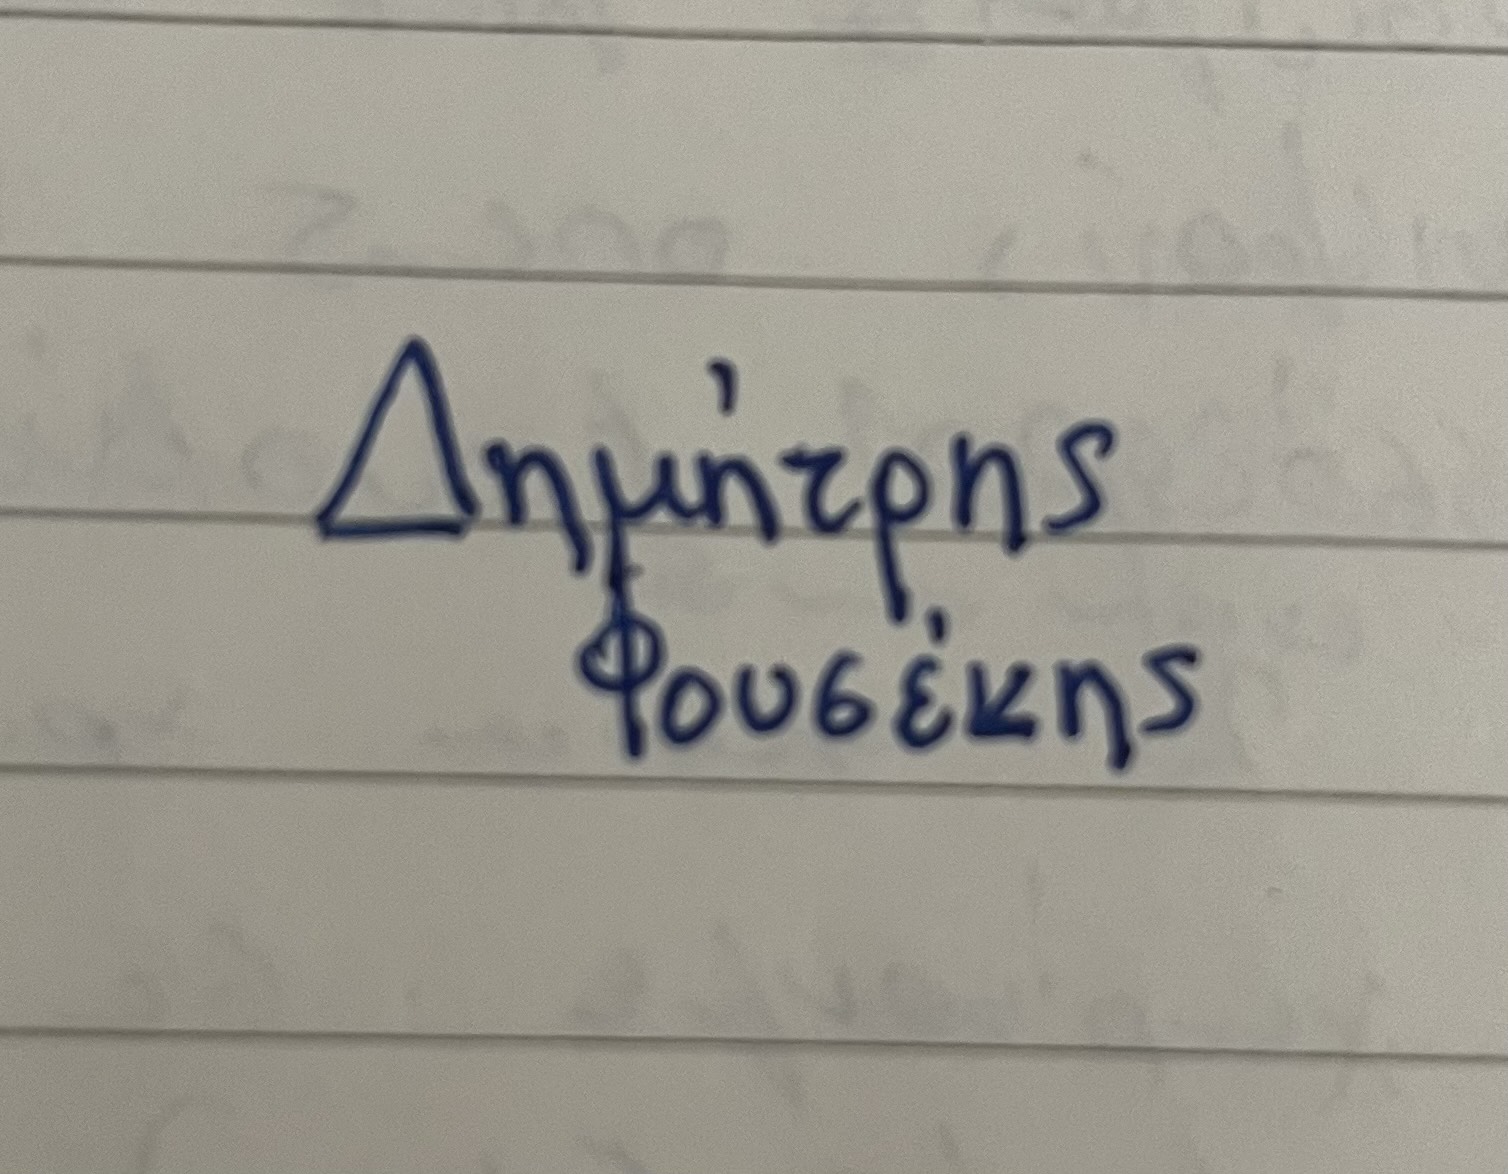 Δημήτρης
Φουσέκης